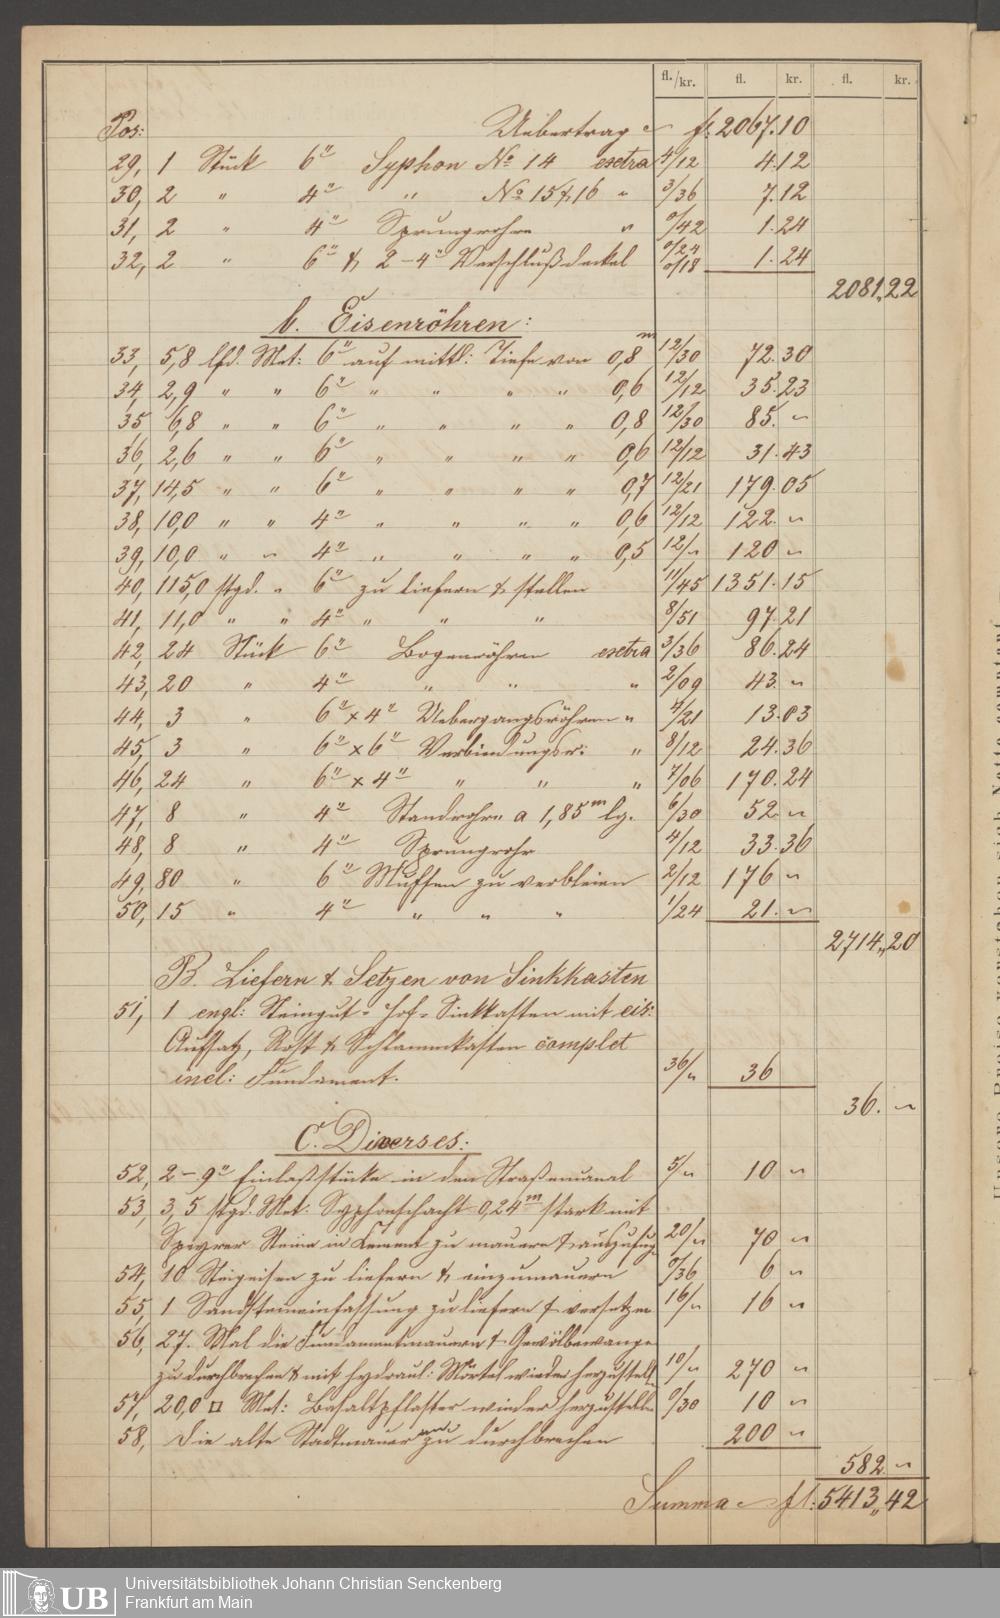 fl./kr. fl. kr. fl. kr.
Pos: Uebertrag fl. 2067. 10
29, 1 Stück 6" Syphon No 14 exetra 4/12 4. 12
30, 2 " 4" " No 15 & 16 " 3/36 7. 12
31, 2 " 4" Sprungrohre " 0/42 1. 24
32, 2 " 6" & 2 - 4" Verschlußdeckel 0/24 0/18 1. 24
2081,, 22
b. Eisenröhren:
33, 5,8 lfd. Met: 6" auf mittl: Tiefe von 0,8 m 12/30 72. 30
34, 2,9 " " 6" " " " " 0,6 12/12 35. 23
35, 6,8 " " 6" " " " " 0,8 12/30 85. "
36, 2,6 " " 6" " " " " 0,6 12/12 31. 43
37, 14,5 " " 6" " " " " 0,7 12/21 179. 05
38, 10,0 " " 4" " " " " 0,6 12/12 122. "
39, 10,0 " " 4" " " " " 0,5 12/" 120 "
40, 115,0 stgd. " 6" zu liefern & stellen 11/45 1351. 15
41, 11,0 " " 4" " " " 8/51 97. 21
42, 24 Stück 6" Bogenröhren exetra 3/36 86. 24
43, 20 " 4" " " " 2/09 43. "
44, 3 " 6" x 4" Uebergangsröhren " 4/21 13. 03
45, 3 " 6" x 6" Verbindungsr: " 8/12 24. 36
46, 24 " 6" x 4" " " " 7/06 170. 24
47, 8 " 4" Standrohre a 1,85 m lg. 6/30 52. "
48, 8 " 4" Sprungrohr 4/12 33. 36
49, 80 " 6" Muffen zu verbleien 2/12 176 "
50, 15 " 4" " " " 1/24 21. "
2714,, 20
B. Liefern & Setzen von Sinkkasten
51, 1 engl: Steingut-Hof-Sinkkasten mit eis:
Aufsatz, Rost & Schlammkasten complet
incl: Fundament. 36/" 36
36. "
C. Diverses:
52, 2 - 9" Einlaßstücke in den Straßencanal 5/" 10 "
53, 3,5 stgd. Met: Syphonschacht 0,24 m stark mit
Speyrer Steine in Cement zu mauern & auszufug. 20/" 70 "
54, 10 Steigeisen zu liefern & einzumauern 0/36 6 "
55, 1 Sandsteineinfassung zu liefern & versetzen 16/" 16 "
56, 27. Mal die Fundamentmauern & Gewölbewange
zu durchbrechen & mit hydraul: Mörtel wieder herzustell. 10/" 270 "
57, 20,0 □ Met: Basaltpflaster wieder herzustellen 0/30 10 "
58, Die alte Stadtmauer zu durchbrechen 200 "
582 "
Summa fl: 5413,, 42
UB
Universitätsbibliothek Johann Christian Senckenberg
Frankfurt am Main